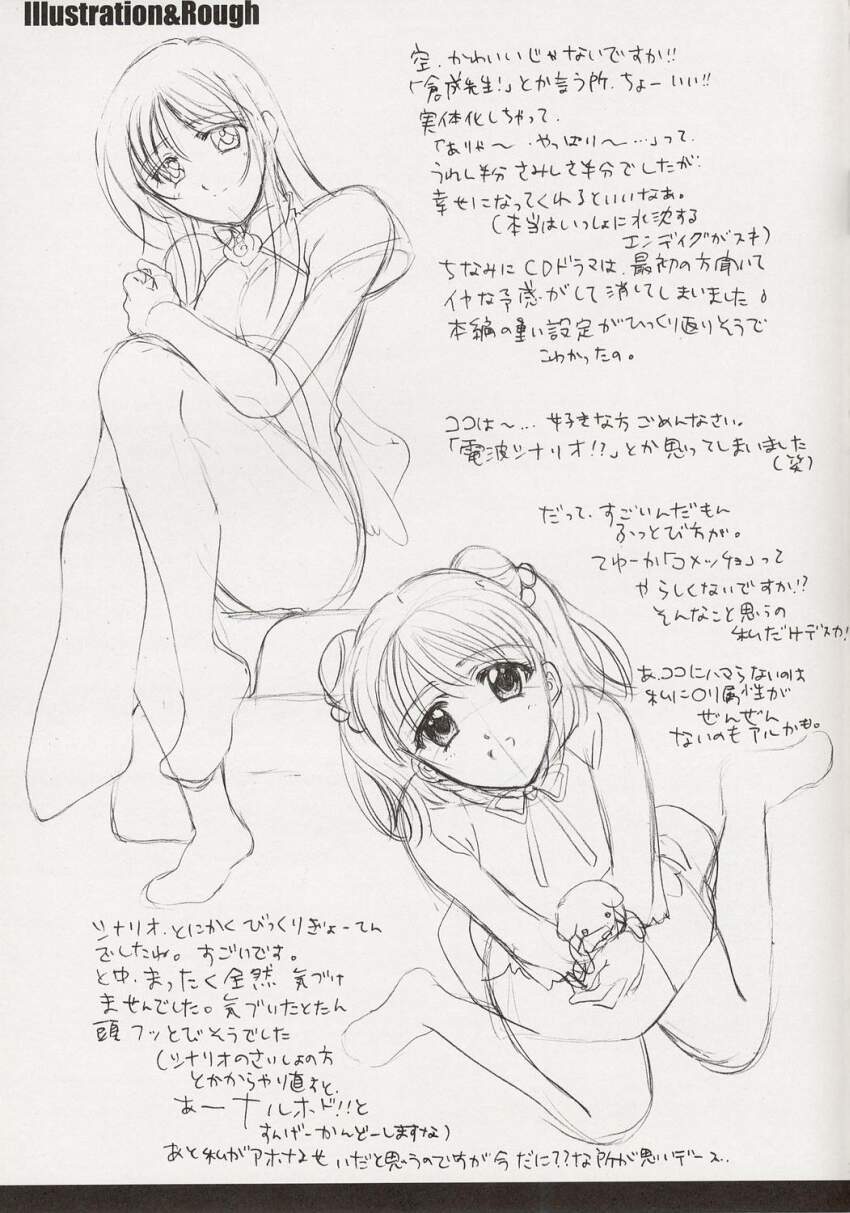 Illustration&Rough
空、かわいいじゃないですか!!
「倉成先生!」とか言う所、ちょーいい!!
実体化しちゃって、
「ありゃ〜 やっぱり〜…」って、
うれしさ半分 さみしさ半分でしたが、
幸せになってくれるといいなぁ。
(本当はいっしょに水沈する
エンディグがスキ)
ちなみにCDドラマは、最初の方聞いて
イヤな予感がして消してしまいました。
本編の重い設定がひっくり返りそうで
こわかったの。
ココは〜… 好きな方ごめんなさい。
「電波シナリオ!?」とか思ってしまいました
(笑)
だって、すごいんだもん
ふっとび方が。
てゆーか「コメッチョ」って
やらしくないですか!?
そんなこと思うの
私だけデスカ!
あ、ココにハマらないのは
私に〇リ属性が
ぜんぜん
ないのもアルかも。
シナリオ、とにかくびっくりぎょーてん
でしたね。すごいです。
と中、まったく全然 気づけ
ませんでした。気づいたとたん
頭フッとびそうでした
(シナリオのさいしょの方
とかからやり直すと、
あーナルホド!!と
すんげーかんどーしますな)
あと私がアホなせいだと思うのですが今だに??な所が思いデース..